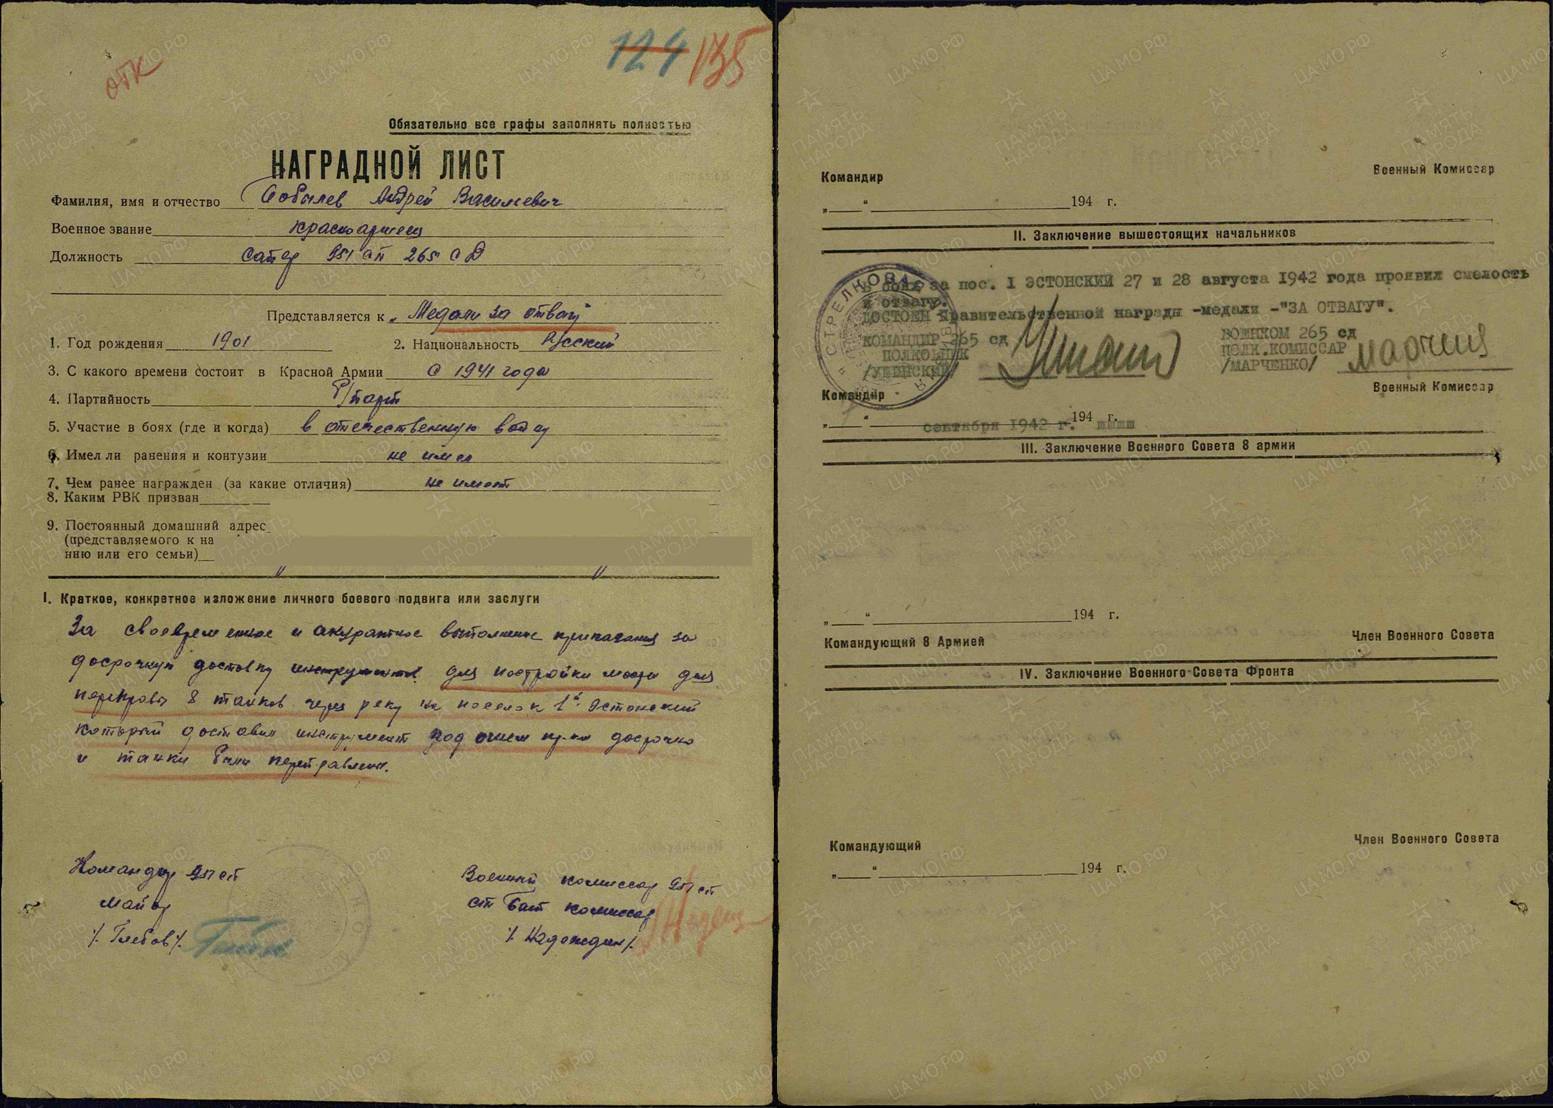 отк
124 135
Обязательно все графы заполнять полностью
НАГРАДНОЙ ЛИСТ
Фамилия, имя и отчество Собылев Андрей Васильевич
Военное звание красноармеец
Должность сапер 951 сп 265 СД
Представляется к "Медали За отвагу"
1. Год рождения 1901 2. Национальность Русский
3. С какого времени состоит в Красной Армии с 1941 года
4. Партийность б/парт
5. Участие в боях (где и когда) в отечественную войну
6. Имел ли ранения и контузии не имел
7. Чем ранее награжден (за какие отличия) не имеет
8. Каким РВК призван
9. Постоянный домашний адрес
(представляемого к на
нию или его семьи)
I. Краткое, конкретное изложение личного боевого подвига или заслуги
За своевременное и акуратное выполнение приказания за
досрочную доставку инструмента для постройки моста для
переправы 8 танков через реку на поселок 1й Эстонский
который доставил инструмент под огнем пр-ка досрочно
и танки были переправлены.
Командир 951 сп Военный комиссар 951 сп
майор ст бат комиссар
/. Глебов/. /. Надеждин/.
Командир Военный Комиссар
„ “ 194 г.
II. Заключение вышестоящих начальников
В боях за пос. 1 ЭСТОНСКИЙ 27 и 28 августа 1942 года проявил смелость
и отвагу.
ДОСТОИН Правительственной награды -медали -"ЗА ОТВАГУ".
КОМАНДИР 265 сд ВОЕНКОМ 265 сд
ПОЛКОВНИК ПОЛК.КОМИССАР
/УШИНСКИЙ/ /МАРЧЕНКО/
Командир Военный Комиссар
„ “ 194 г.
сентября 1942 г.
III. Заключение Военного Совета 8 армии
„ “ 194 г.
Командующий 8 Армией Член Военного Совета
IV. Заключение Военного Совета Фронта
Командующий Член Военного Совета
„ “ 194 г.